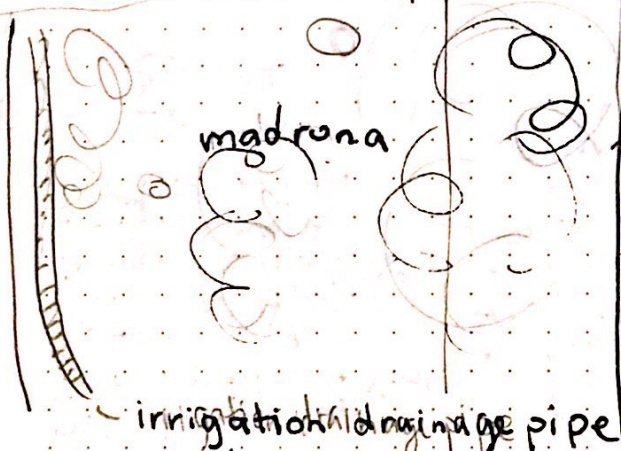 madrona
irrigation drainage pipe